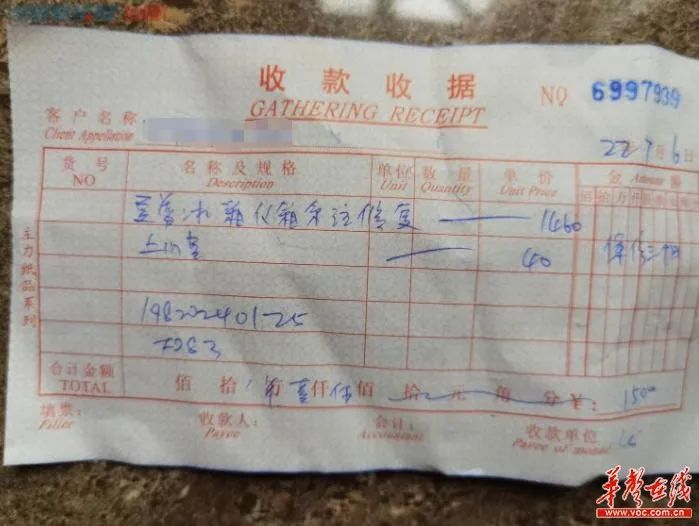 收款收据
GATHERING RECEIPT
NO 6997939
客户名称:
Client Appellation
22年7月6日
货号 名称及规格 单位 数量 单价 金 Amount 额
NO Description Unit Quantity Unit Price 佰 拾 万 仟
修复 1460
上门 40
19820240125
7283
合计金额
TOTAL
佰 拾 万 壹仟伍佰 拾 元 角 分 ¥: 1500
填票: 收款人: 会计: 收款单位
Filler Payee Accountant Payee of money
主力纸品系列
华声在线
www.voc.com.cn